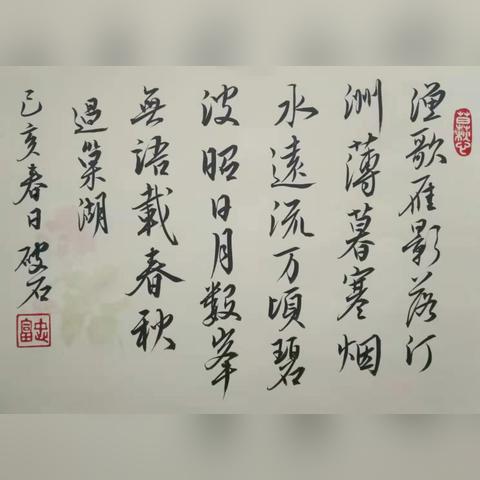 渔歌雁影落汀
洲薄暮寒烟
水远流万頃碧
波昭日月数峯
無语載春秋
過巢湖
己亥春日破石